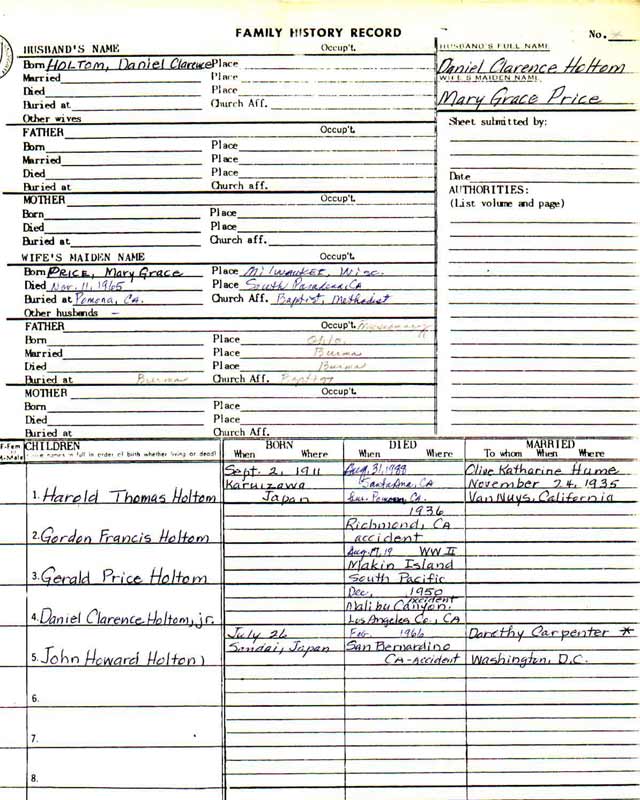 FAMILY HISTORY RECORD
No.
HUSBAND'S NAME Occup't.
Born HOLTOM, Daniel Clarence Place
Married Place
Died Place
Buried at Church Aff.
Other wives
FATHER Occup't.
Born Place
Married Place
Died Place
Buried at Church aff.
MOTHER Occup't.
Born Place
Died Place
Buried at Church aff.
WIFE'S MAIDEN NAME Occup't.
Born PRICE, Mary Grace Place Milwaukee, Wisc.
Died Nov. 11, 1965 Place South Pasadena, CA
Buried at Pomona, CA. Church Aff. Baptist, Methodist
Other husbands -
FATHER Occup't. Missionary
Born Place Ohio
Married Place Burma
Died Place Burma
Buried at Burma Church Aff. Baptist
MOTHER Occup't.
Born Place
Died Place
Buried at Church Aff.
HUSBAND'S FULL NAME
Daniel Clarence Holtom
WIFE'S MAIDEN NAME
Mary Grace Price
Sheet submitted by:
Date
AUTHORITIES:
(List volume and page)
CHILDREN BORN DIED MARRIED
names in full in order of birth whether living or dead) When Where When Where To whom When Where
Sept. 2, 1911 Aug. 31, 1988 Olive Katharine Hume
Karuizawa Santa Ana, CA November 24, 1935
1. Harold Thomas Holtom Japan Pomona, Ca. Van Nuys, California
1936
Richmond, CA
2. Gordon Francis Holtom accident
Aug. 17, 19 WW II
Makin Island
3. Gerald Price Holtom South Pacific
Dec, 1950
accident
Malibu Canyon.
4. Daniel Clarence Holtom, jr. Los Angeles Co., CA
July 26 Feb. 1966 Dorothy Carpenter *
Sendai, Japan San Bernardino
5. John Howard Holtom CA-accident Washington, D.C.
6.
7.
8.